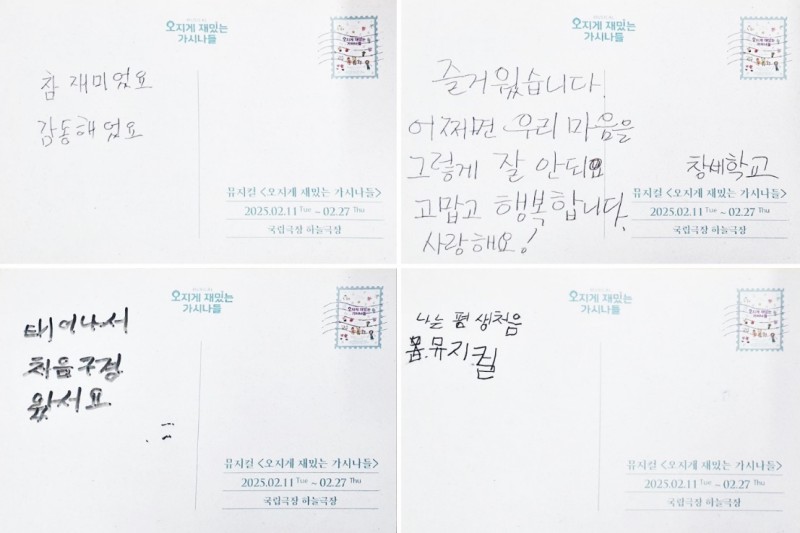 MUSICAL
오지게 재밌는
가시나들
참 재미었요
감동해었요
뮤지컬 <오지게 재밌는 가시나들>
2025.02.11 Tue ~ 02.27 Thu
국립극장 하늘극장
오지게 재밌는
가시나들
즐거웠습니다.
어쩌면 우리 마음을
그렇게 잘 안되요
고맙고 행복합니다.
사랑해요!
창세학교
뮤지컬 <오지게 재밌는 가시나들>
2025.02.11 Tue ~ 02.27 Thu
국립극장 하늘극장
MUSICAL
오지게 재밌는
가시나들
태어나서
처음구경
왔서요
뮤지컬 <오지게 재밌는 가시나들>
2025.02.11 Tue ~ 02.27 Thu
국립극장 하늘극장
오지게 재밌는
가시나들
나는 평생처음
봄 뮤지컬
뮤지컬 <오지게 재밌는 가시나들>
2025.02.11 Tue ~ 02.27 Thu
국립극장 하늘극장